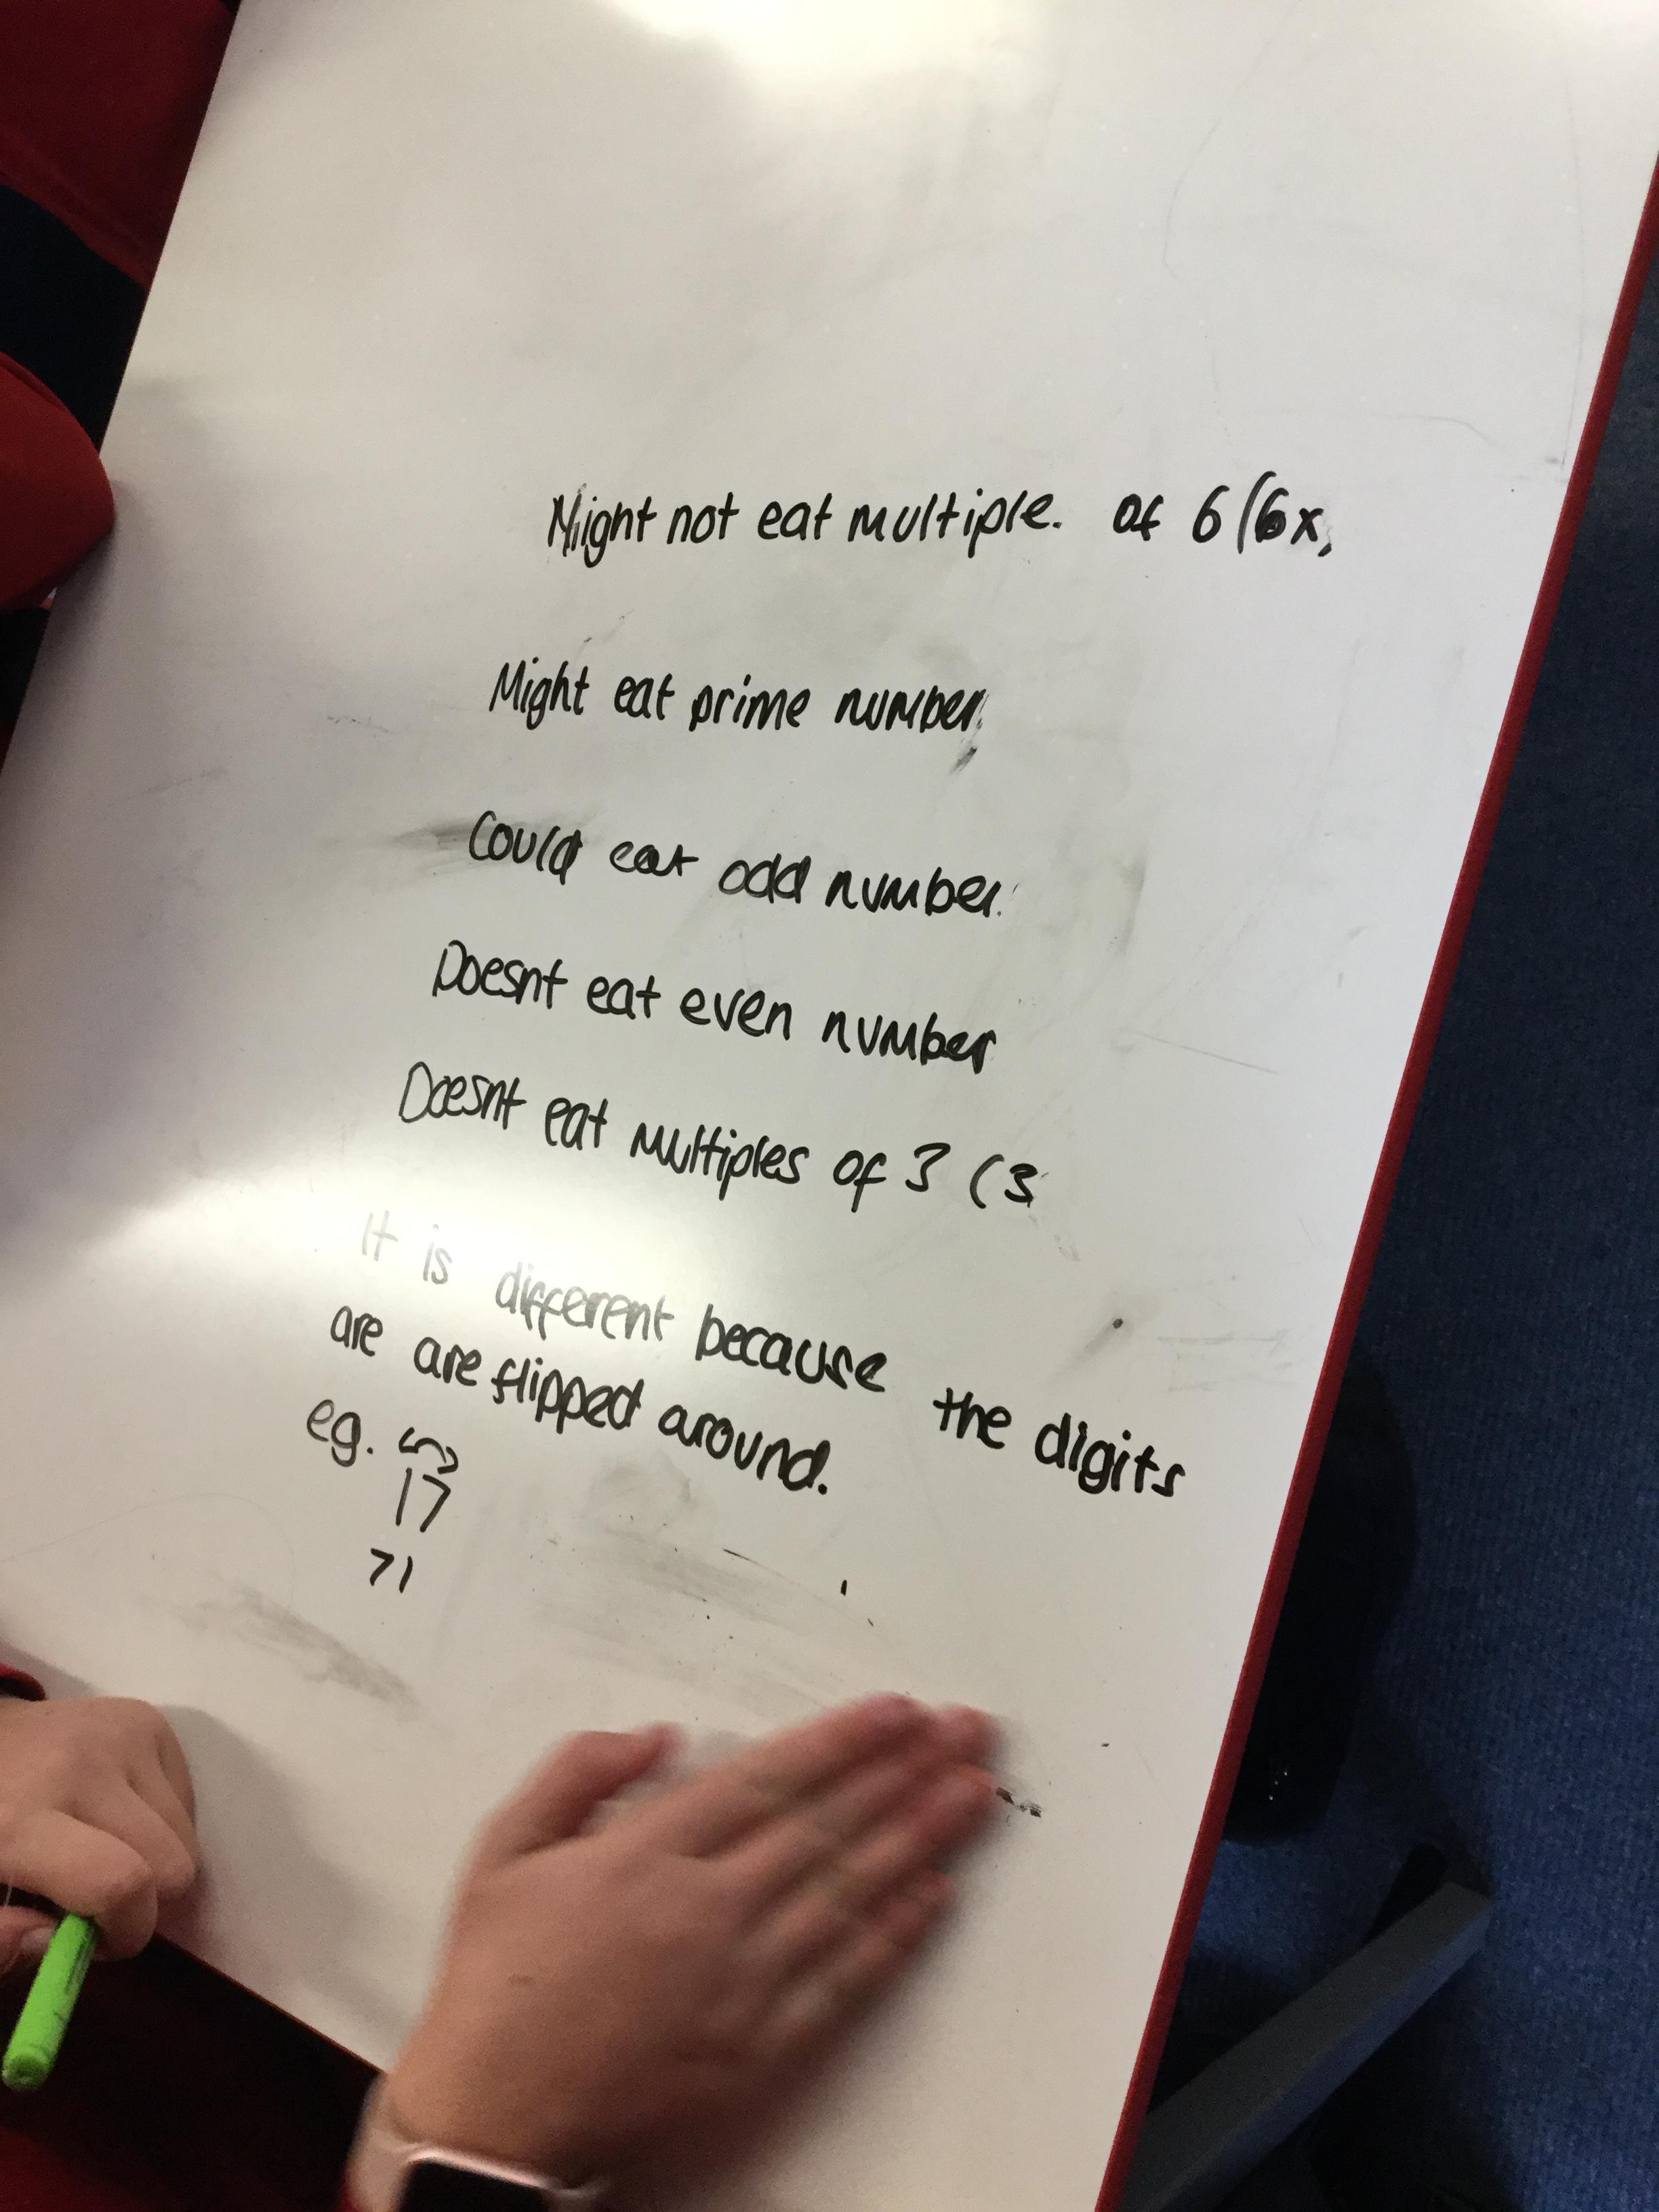 Might not eat multiple. of 6 (6x,
Might eat prime number.
Could eat odd number.
Doesnt eat even number
Doesnt eat multiples of 3 (3
It is different because the digits
are are flipped around.
eg.
17
71